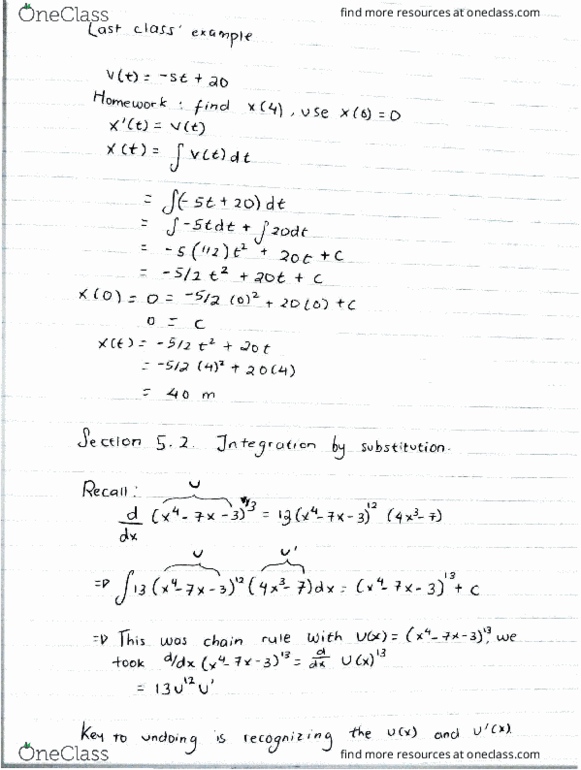 OneClass find more resources at oneclass.com
Last class' example
v(t) = -5t + 20
Homework : find x(4), use x(0) = 0
x'(t) = v(t)
x(t) = ∫ v(t) dt
= ∫(-5t + 20) dt
= ∫ -5t dt + ∫ 20 dt
= -5 (1/2) t² + 20t + C
= -5/2 t² + 20t + C
x(0) = 0 = -5/2 (0)² + 20(0) + C
0 = C
x(t) = -5/2 t² + 20 t
= -5/2 (4)² + 20(4)
= 40 m
Section 5.2. Integration by substitution.
Recall: U
d/dx (x⁴ - 7x - 3)¹³ = 13(x⁴ - 7x - 3)¹² (4x³ - 7)
U U'
⇒ ∫ 13 (x⁴ - 7x - 3)¹² (4x³ - 7) dx = (x⁴ - 7x - 3)¹³ + C
⇒ This was chain rule with U(x) = (x⁴ - 7x - 3)¹³, we
took d/dx (x⁴ - 7x - 3)¹³ = d/dx U(x)¹³
= 13U¹²U'
Key to undoing is recognizing the U(x) and U'(x).
OneClass find more resources at oneclass.com